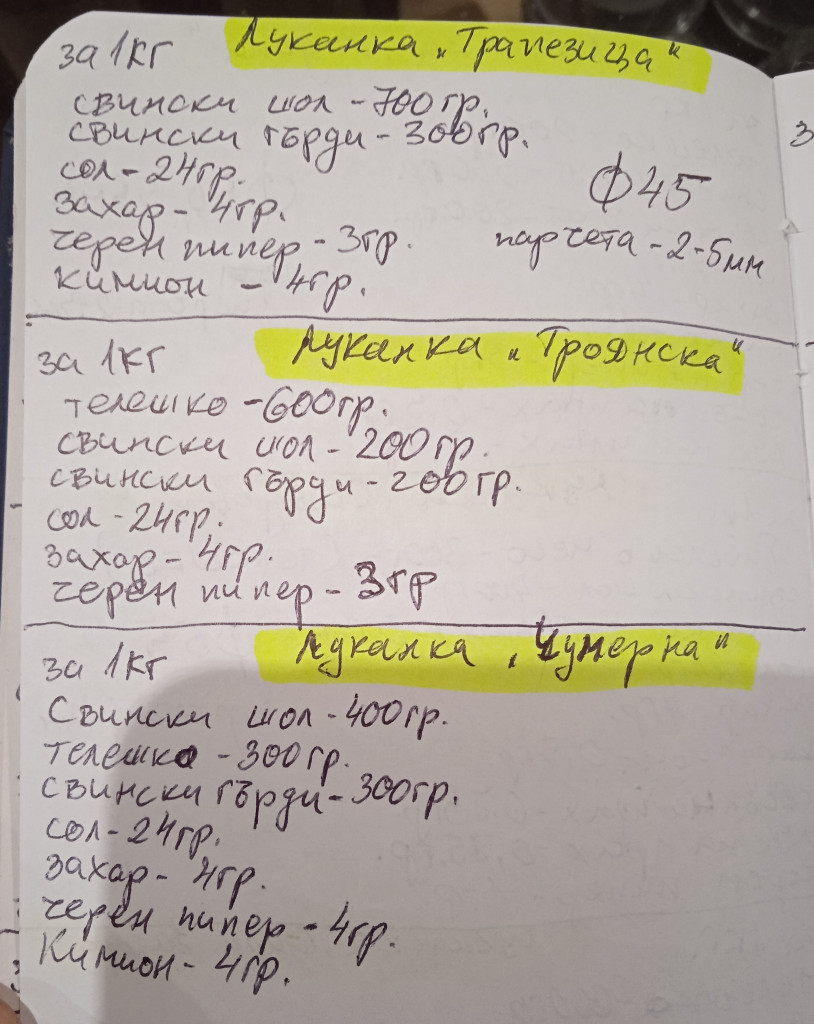 за 1кг Луканка „Трапезица“
свински шол - 700гр.
свински гърди - 300гр.
сол - 24гр.
захар - 4гр.
Ф45
черен пипер - 3гр.
парчета - 2-5мм
кимион - 4гр.
за 1кг Луканка „Троянска“
телешко - 600гр.
свински шол - 200гр.
свински гърди - 200гр.
сол - 24гр.
захар - 4гр.
черен пипер - 3гр
за 1кг Луканка „Чумерна“
Свински шол - 400гр.
телешко - 300гр.
свински гърди - 300гр.
сол - 24гр.
захар - 4гр.
черен пипер - 4гр.
Кимион - 4гр.